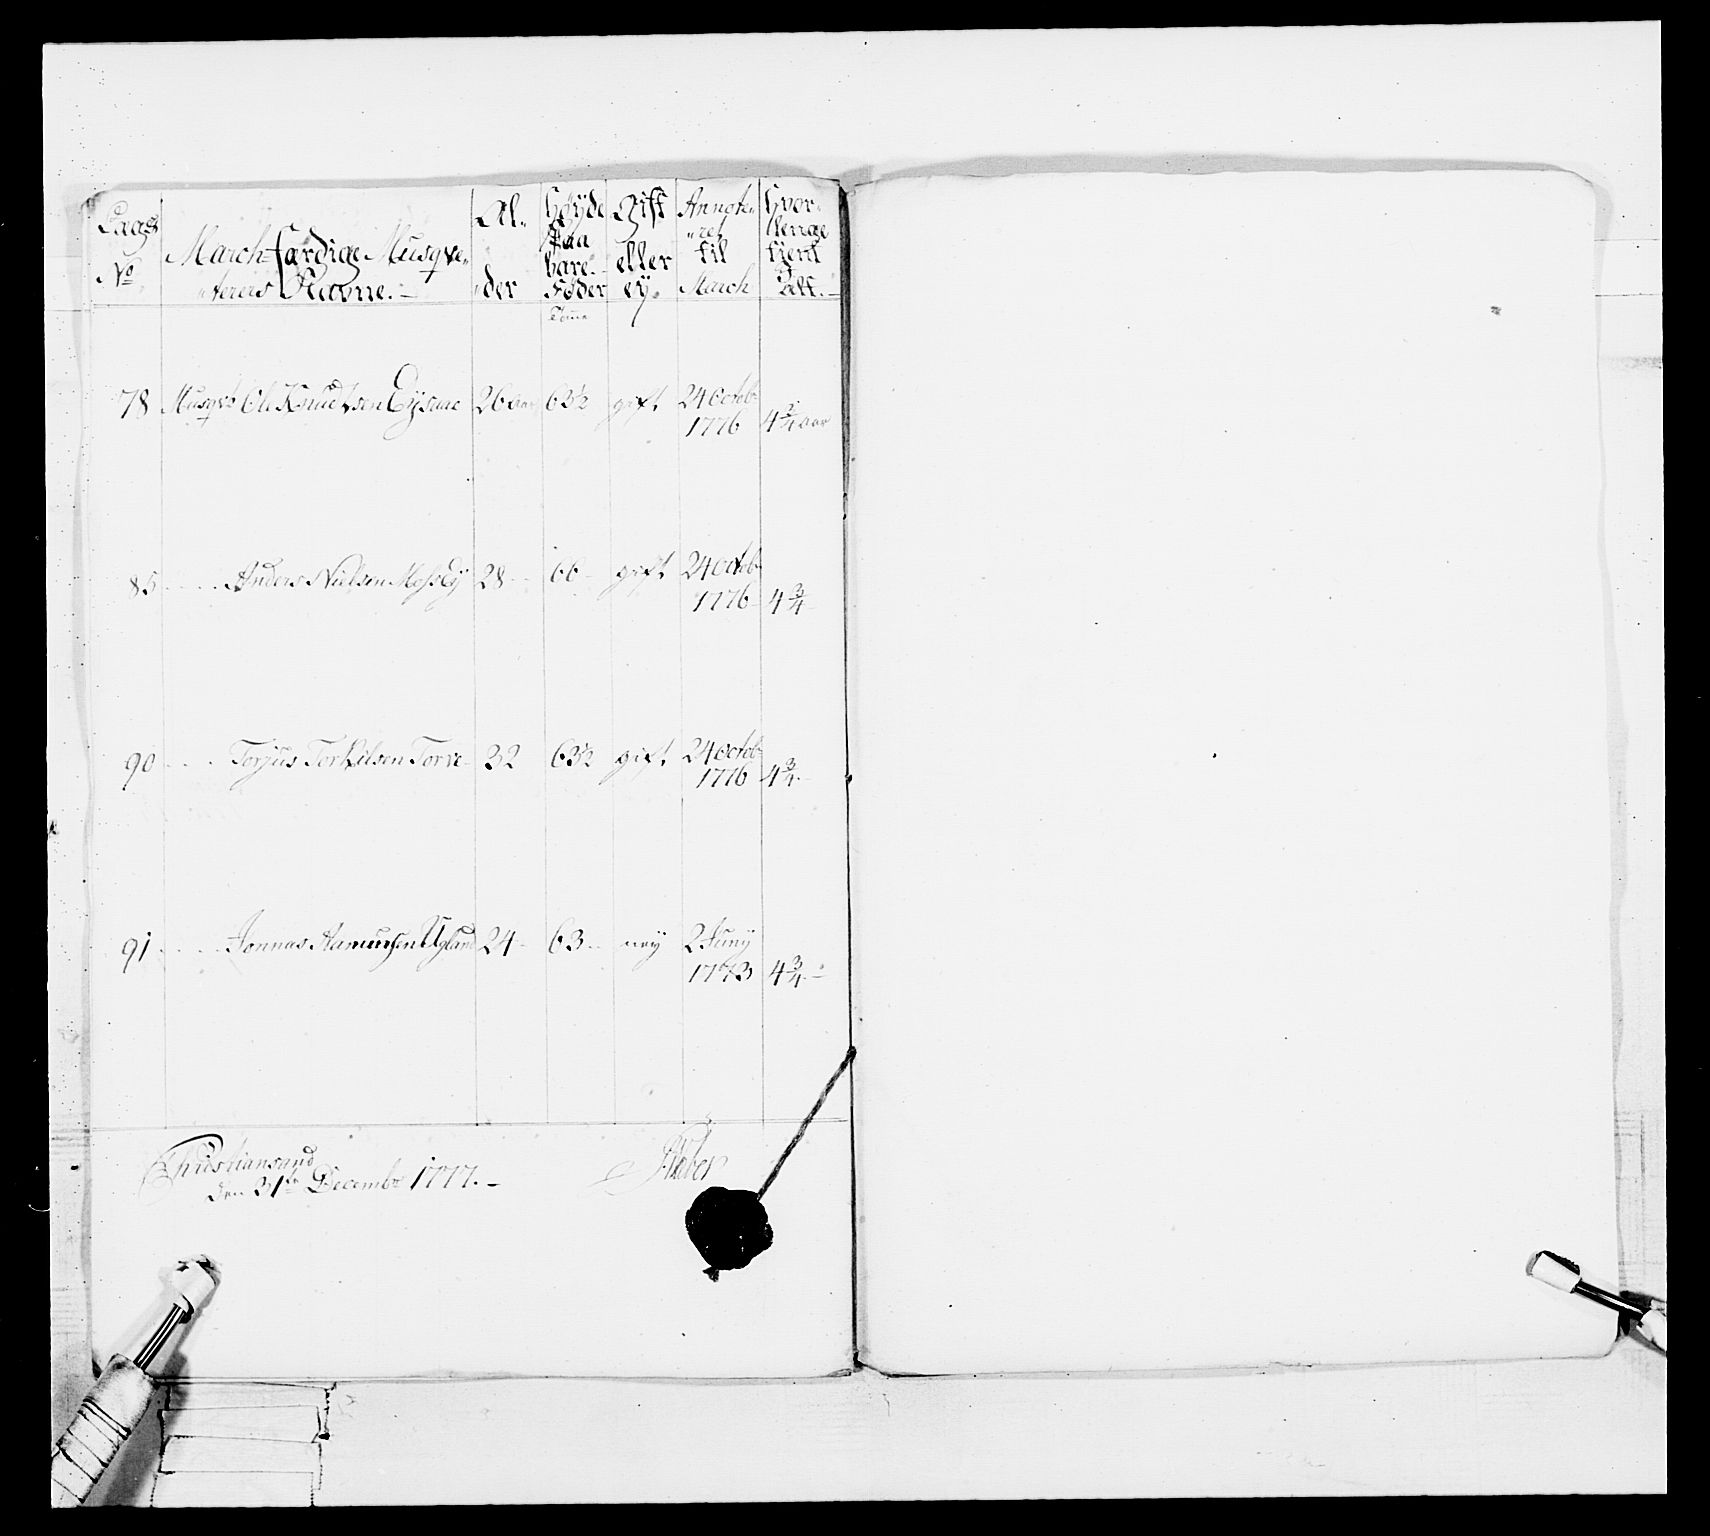 Lægs No | March-færdige Musqve-terers Navne. | Al-der | Høyde paa bare Føder | Gift eller ey. | Annote-ret til March | Hvor-længe tient
Tome
78 Musqvr Ole Knudtsen 26 aar 63½ gift 24 Octob 1776 4¾ aar
85 Anders Nielsen MossEy 28 66 gift 24 Octob 1776 4¾
90 Torjus Torkilsen Torve 32 63½ gift 24 Octob 1776 4¾
91 Jonnas Aamunsen Ugland 24 63 ney 2 Juny 1773 4¾
Christiansand
den 31te Decembr 1777.